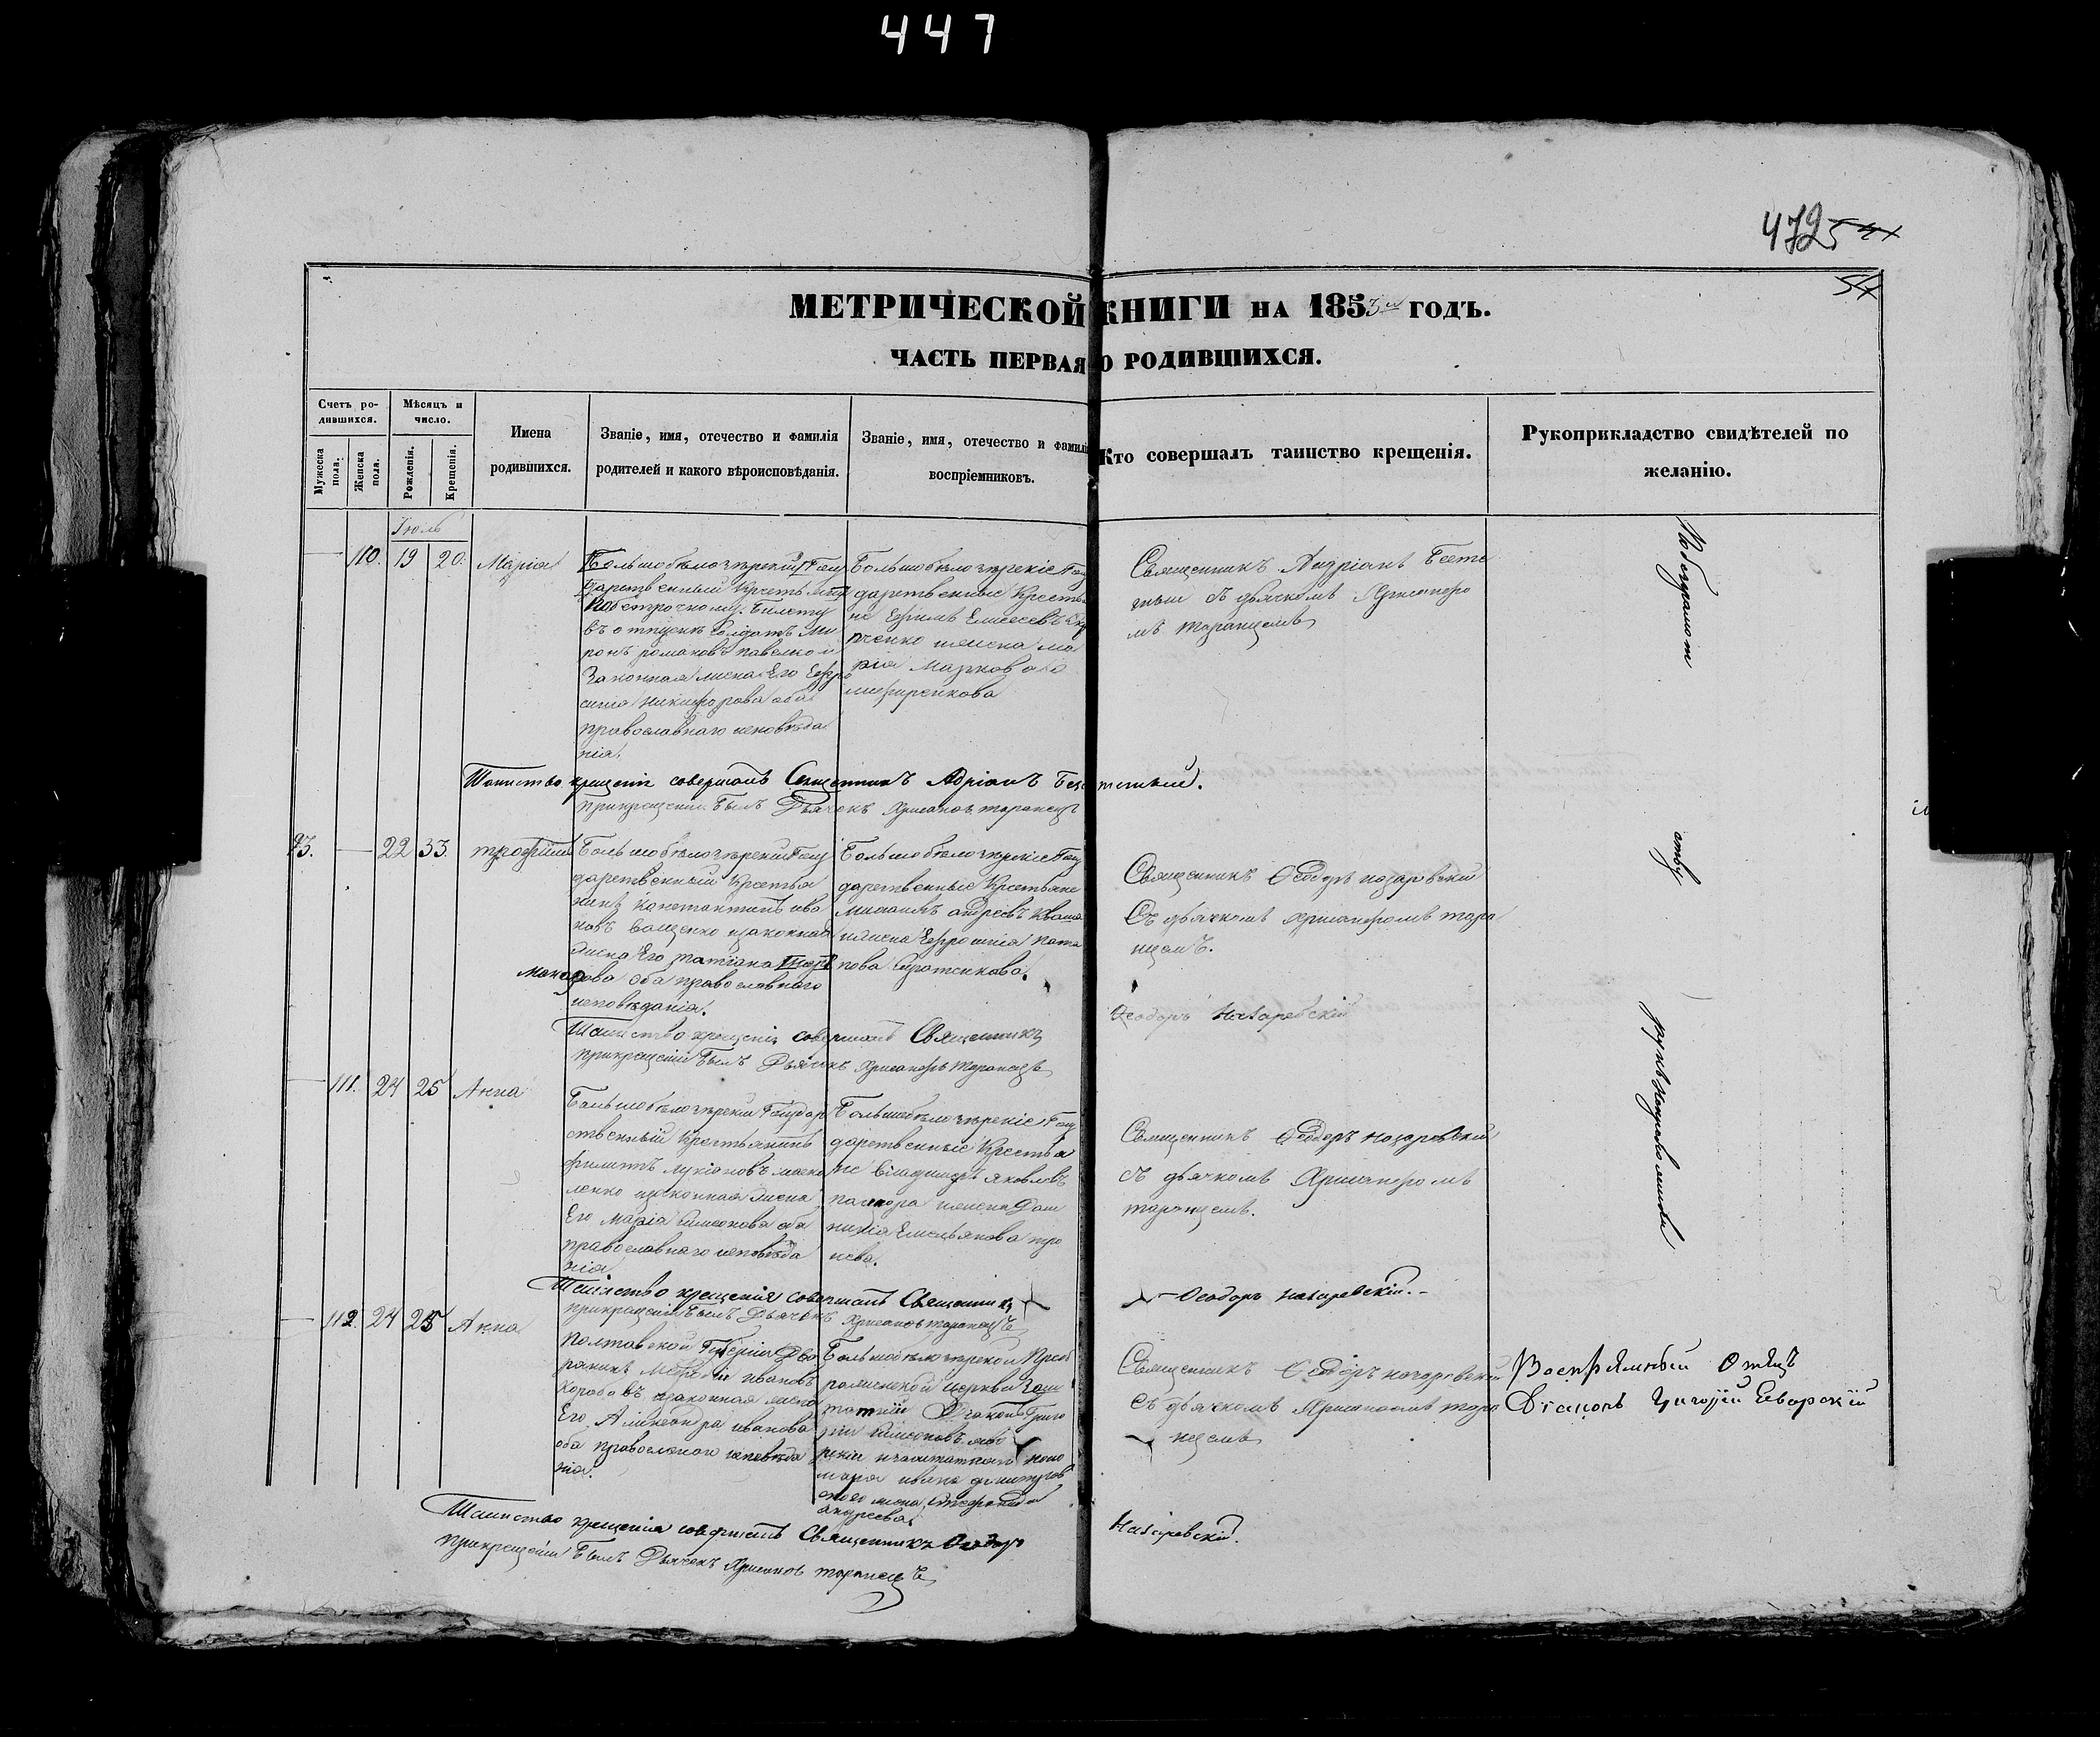 447
472
54
МЕТРИЧЕСКОЙ КНИГИ НА 1853й ГОДЪ.
ЧАСТЬ ПЕРВАЯ О РОДИВШИХСЯ.
Счетъ родившихся.
Мужеска пола.
Женска пола.
Мѣсяцъ и число.
Рожденія.
Крещенія.
Имена родившихся.
Званіе, имя, отечество и фамилія родителей и какого вѣроисповѣданія.
Званіе, имя, отечество и фамилія воспріемниковъ.
Кто совершалъ таинство крещенія.
Рукоприкладство свидѣтелей по желанію.
Іюль
110. 19 20. Марія
Большобѣлозѣрскій Госу
дарственный Крестьянинъ
по безсрочному билету
въ отпускѣ солдатъ Ми
ронъ романовъ павелко и
Законная жена Его Евфро
синія никифорова оба
православнаго исповѣда
нія.
Большобѣлозѣрскіе Госу
дарственные Крестья
не Ефимъ Елисеевъ
жена ма
рія Маркова
Священникъ Андріанъ
съ дьячкомъ Хрисанфо
мъ таранцемъ
По безграмот
Таинство крещенія совершалъ Священникъ Адріанъ
при крещеніи былъ Дьячекъ Хрисанфъ таранецъ
93. 22 33. трофимъ
Большобѣлозѣрскій Госу
дарственный Крестья
нинъ константинъ ива
новъ ващенко изаконная
жена Его татіана
макарова оба православнаго
исповѣданія.
Большобѣлозѣрскіе Госу
дарственные Крестьяне
михаилъ андреевъ Кваша
ижена Евфросинія пота
пова
Священникъ Ѳеодоръ назаревскій
Съ дьячкомъ хрисанфомъ тара
нцемъ.
Таинство крещенія совершалъ Священникъ
Ѳеодоръ Назаревскій
при крещеніи былъ Дьячекъ Хрисанфъ Таранецъ
111. 24 25 Анна
Большобѣлозѣрскій Государ
ственный Крестьянинъ
филиппъ лукіановъ васи
ленко изаконная жена
Его Марія Симеонова оба
православнаго исповѣда
нія
Большобѣлозѣрскіе Госу
дарственные Крестья
не Владимиръ яковлевъ
ижена Дом
Емельянова
Священникъ Ѳеодоръ назаревскій
съ дьячкомъ Хрисанфомъ
таранцемъ.
Таинство крещенія совершалъ Священникъ
Ѳеодоръ Назаревскій.
при крещеніи былъ Дьячекъ Хрисанфъ таранецъ
112. 24 25 Анна
Полтавской Губерніи Дво
рянинъ Меѳодій ивановъ
коробовъ изаконная жена
Его Александра иванова
оба православнаго исповѣда
нія.
Большобѣлозѣрской Преоб
раженской церкви Заш
татный Діаконъ Григо
рій Симеоновъ
изаштатнаго поно
маря ивана
жена Стефанида
андреева.
Священникъ Ѳеодоръ назаревскій
съ дьячкомъ Хрисанфомъ тара
нцемъ
Воспріемный Отецъ
Діаконъ Григорій
Таинство крещенія совершалъ Священникъ Ѳеодоръ
Назаревскій.
при крещеніи былъ Дьячекъ Хрисанфъ таранецъ